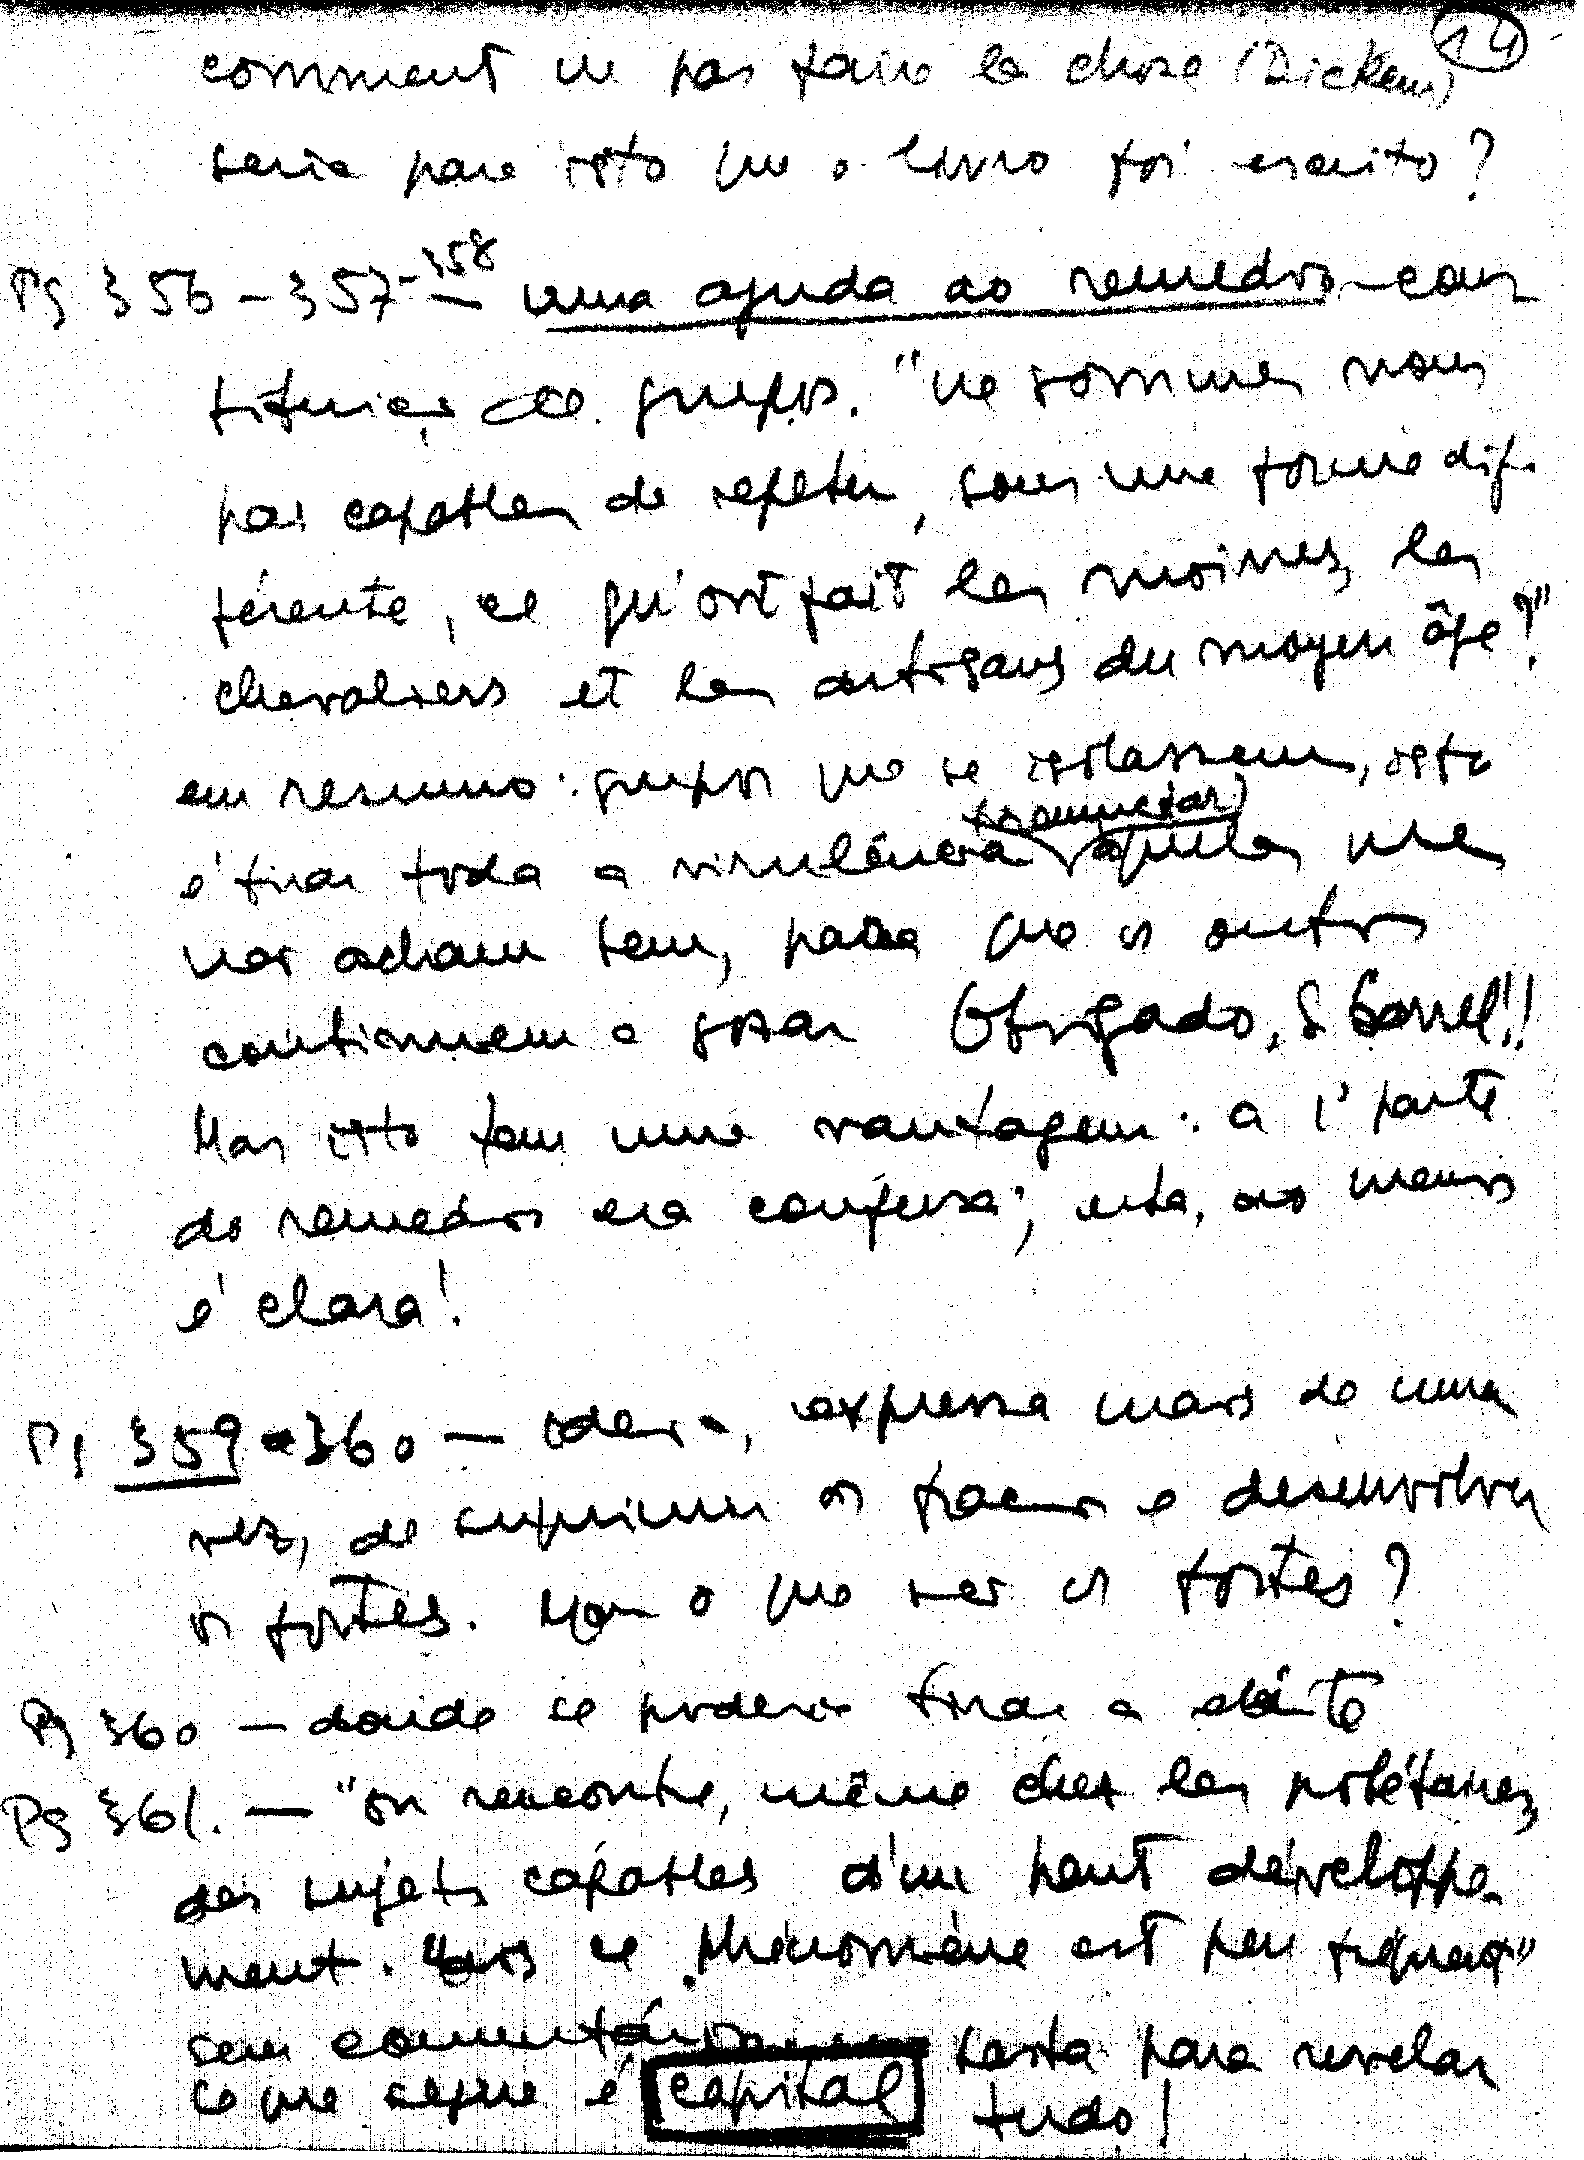 14
comment ne pas faire la chose (Dickens)
seria para isto que o livro foi escrito?
Pg 356 - 357 - 358 — uma ajuda ao remedio - cons
tituição de grupos. "ne sommes nous
pas capables de repeter, sous une forme dif-
férente, ce qu'ont fait les moines, les
chevaliers et les artisans du moyen âge?"
em resumo: grupos que se isolassem, isto
é tirar toda a virulência aqueles que
nos acham bem, para que os outros
continuem a gosar Obrigado, S. Carrel!!
Mas isto tem uma vantagem: a 1ª parte
do remedio era confusa; esta, ao menos
é clara!
Pg 359 - 360 — ideia, expressa mais de uma
vez, de suprimir os fracos e desenvolver
os fortes. Mas o que ser os fortes?
Pg 360 — donde se poderia tirar a elite
Pg 361. — "on rencontre, même chez les prolétaires,
des sujets capables d'un haut développe-
ment. Mais ce phénomène est peu fréquent"
sem comentários basta para revelar
o que segue é capital tudo!